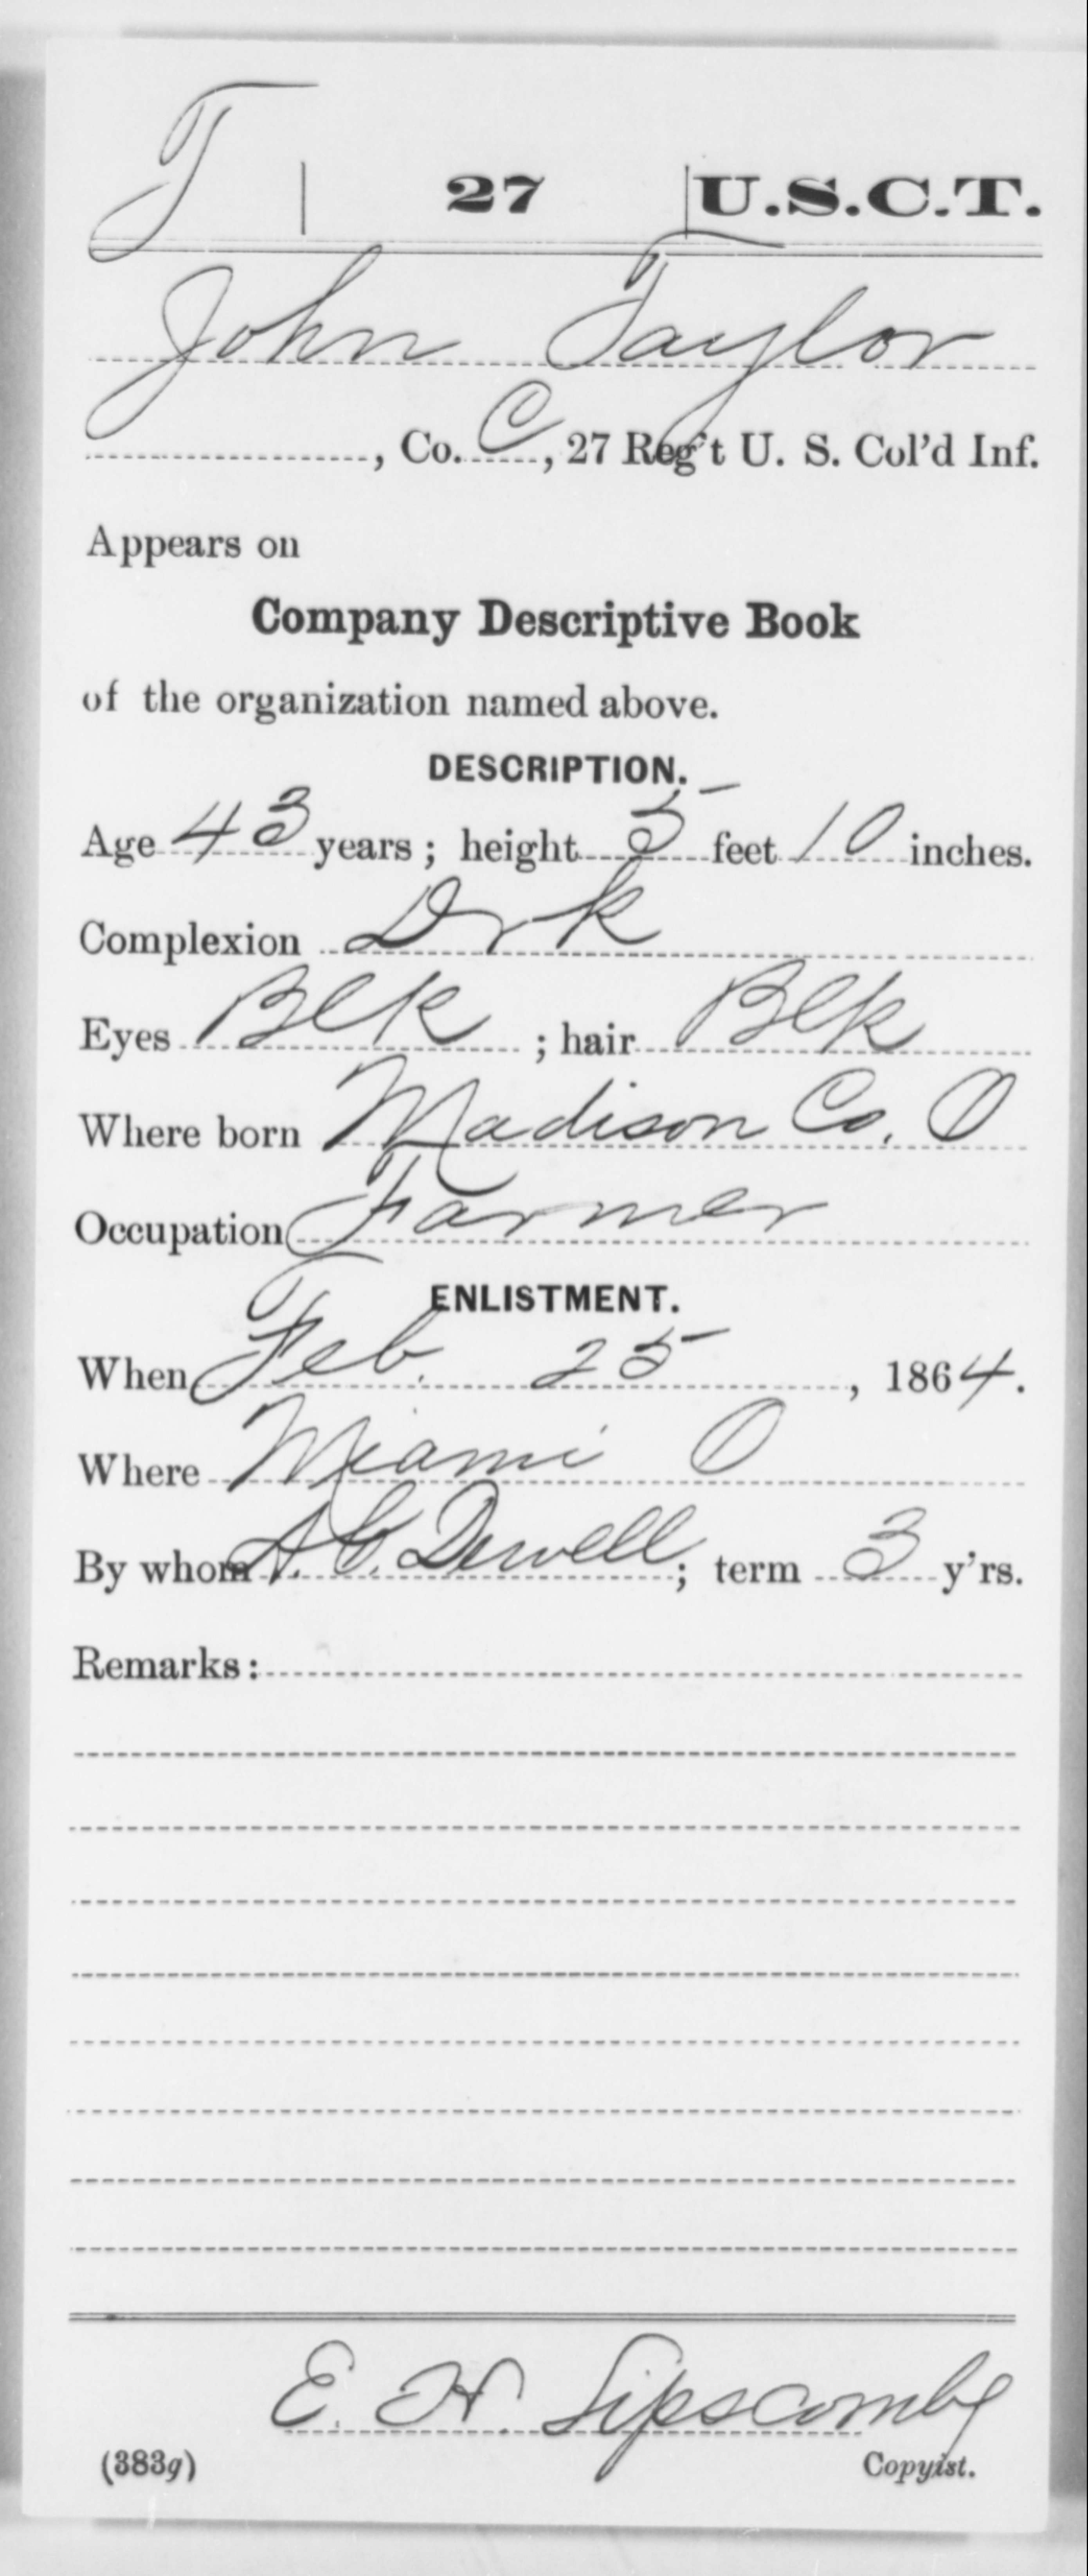 T | 27 | U.S.C.T.
John Taylor
, Co. C, 27 Reg't U. S. Col'd Inf.
Appears on
Company Descriptive Book
of the organization named above.
DESCRIPTION.
Age 43 years; height 5 feet 10 inches.
Complexion Drk
Eyes Blk; hair Blk
Where born Madison Co. O
Occupation Farmer
ENLISTMENT.
When Feb. 25, 1864.
Where Miami O
By whom A. C. Dewell; term 3 y'rs.
Remarks:
E. H. Lipscomb
(383g) Copyist.